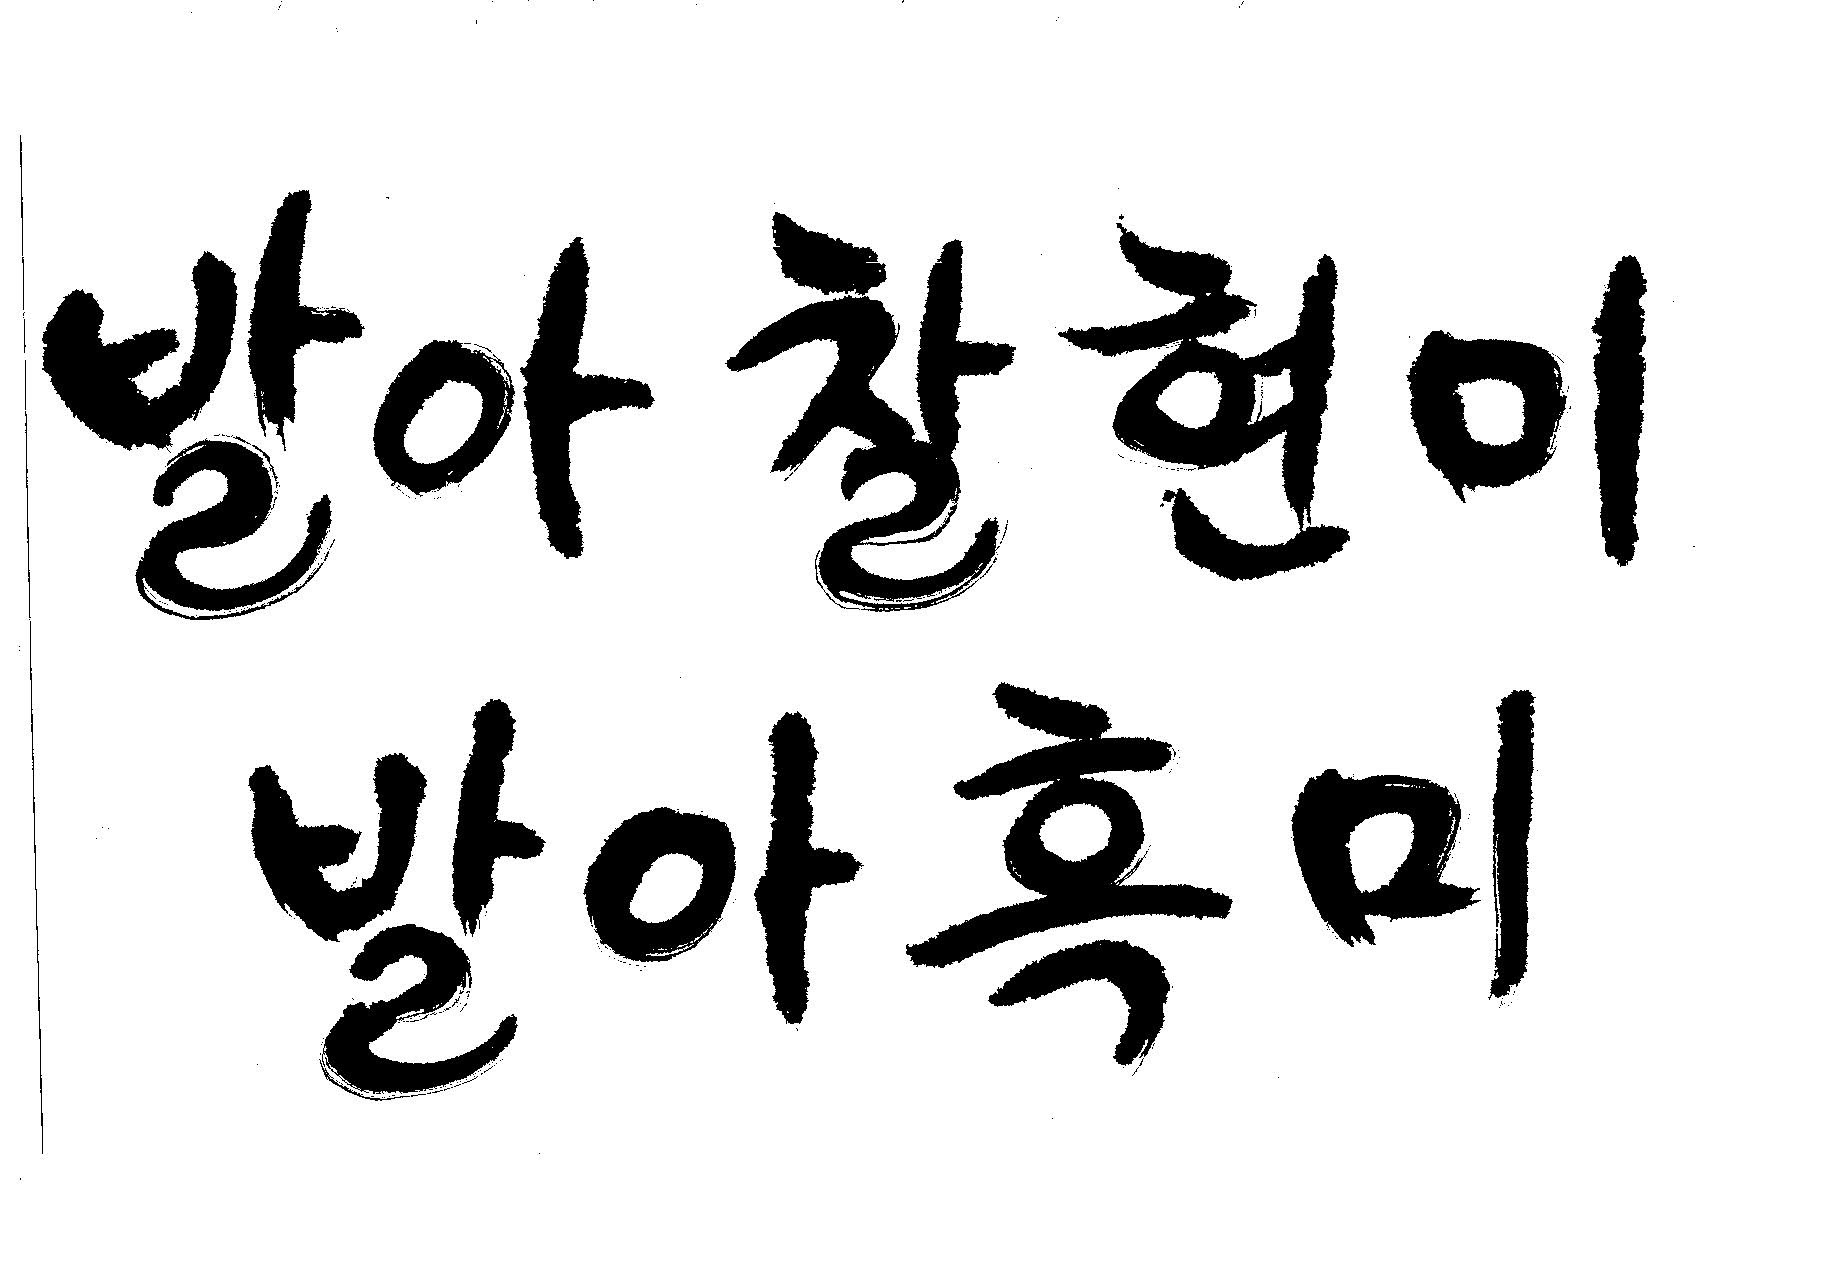 발아 찰현미
발아 흑미